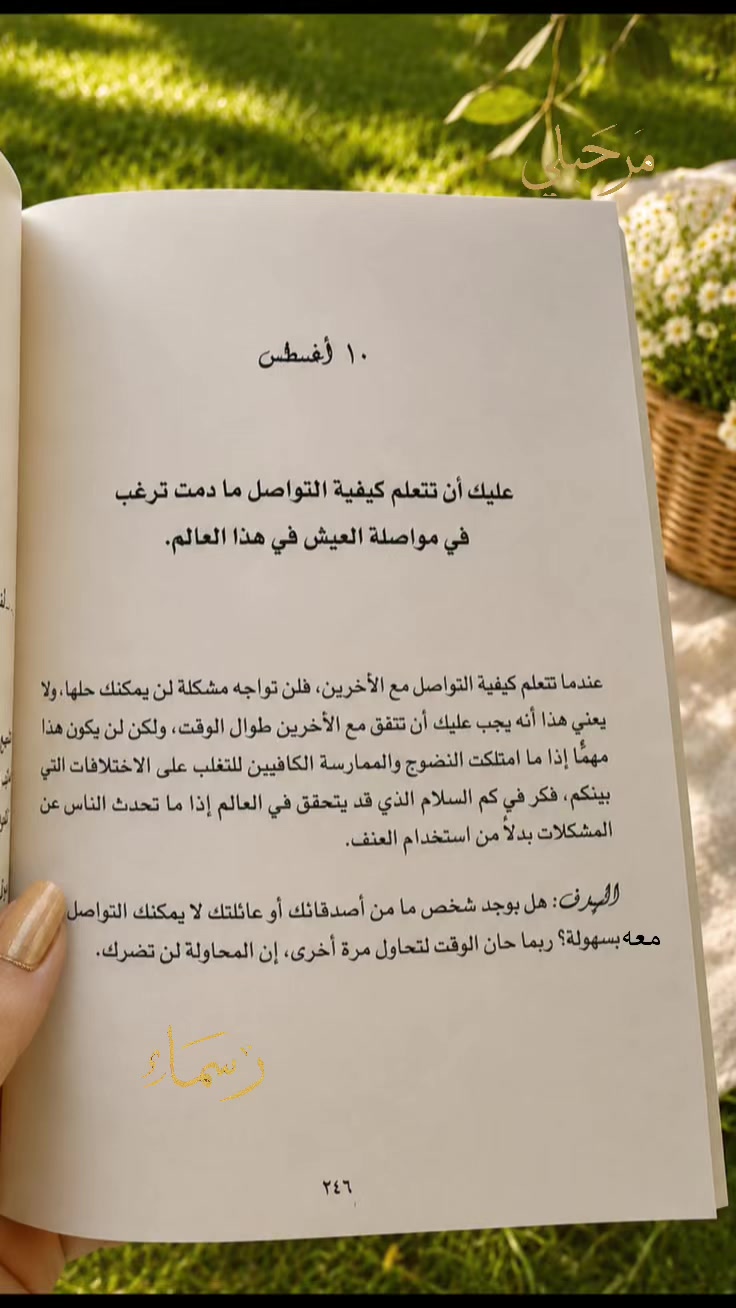 مَرحَبلي
١٠ أغسطس
عليك أن تتعلم كيفية التواصل ما دمت ترغب
في مواصلة العيش في هذا العالم.
عندما تتعلم كيفية التواصل مع الأخرين، فلن تواجه مشكلة لن يمكنك حلها، ولا
يعني هذا أنه يجب عليك أن تتفق مع الأخرين طوال الوقت، ولكن لن يكون هذا
مهمًّا إذا ما امتلكت النضوج والممارسة الكافيين للتغلب على الاختلافات التي
بينكم، فكر في كم السلام الذي قد يتحقق في العالم إذا ما تحدث الناس عن
المشكلات بدلاً من استخدام العنف.
الهدف: هل يوجد شخص ما من أصدقائك أو عائلتك لا يمكنك التواصل
معه بسهولة؟ ربما حان الوقت لتحاول مرة أخرى، إن المحاولة لن تضرك.
٢٤٦